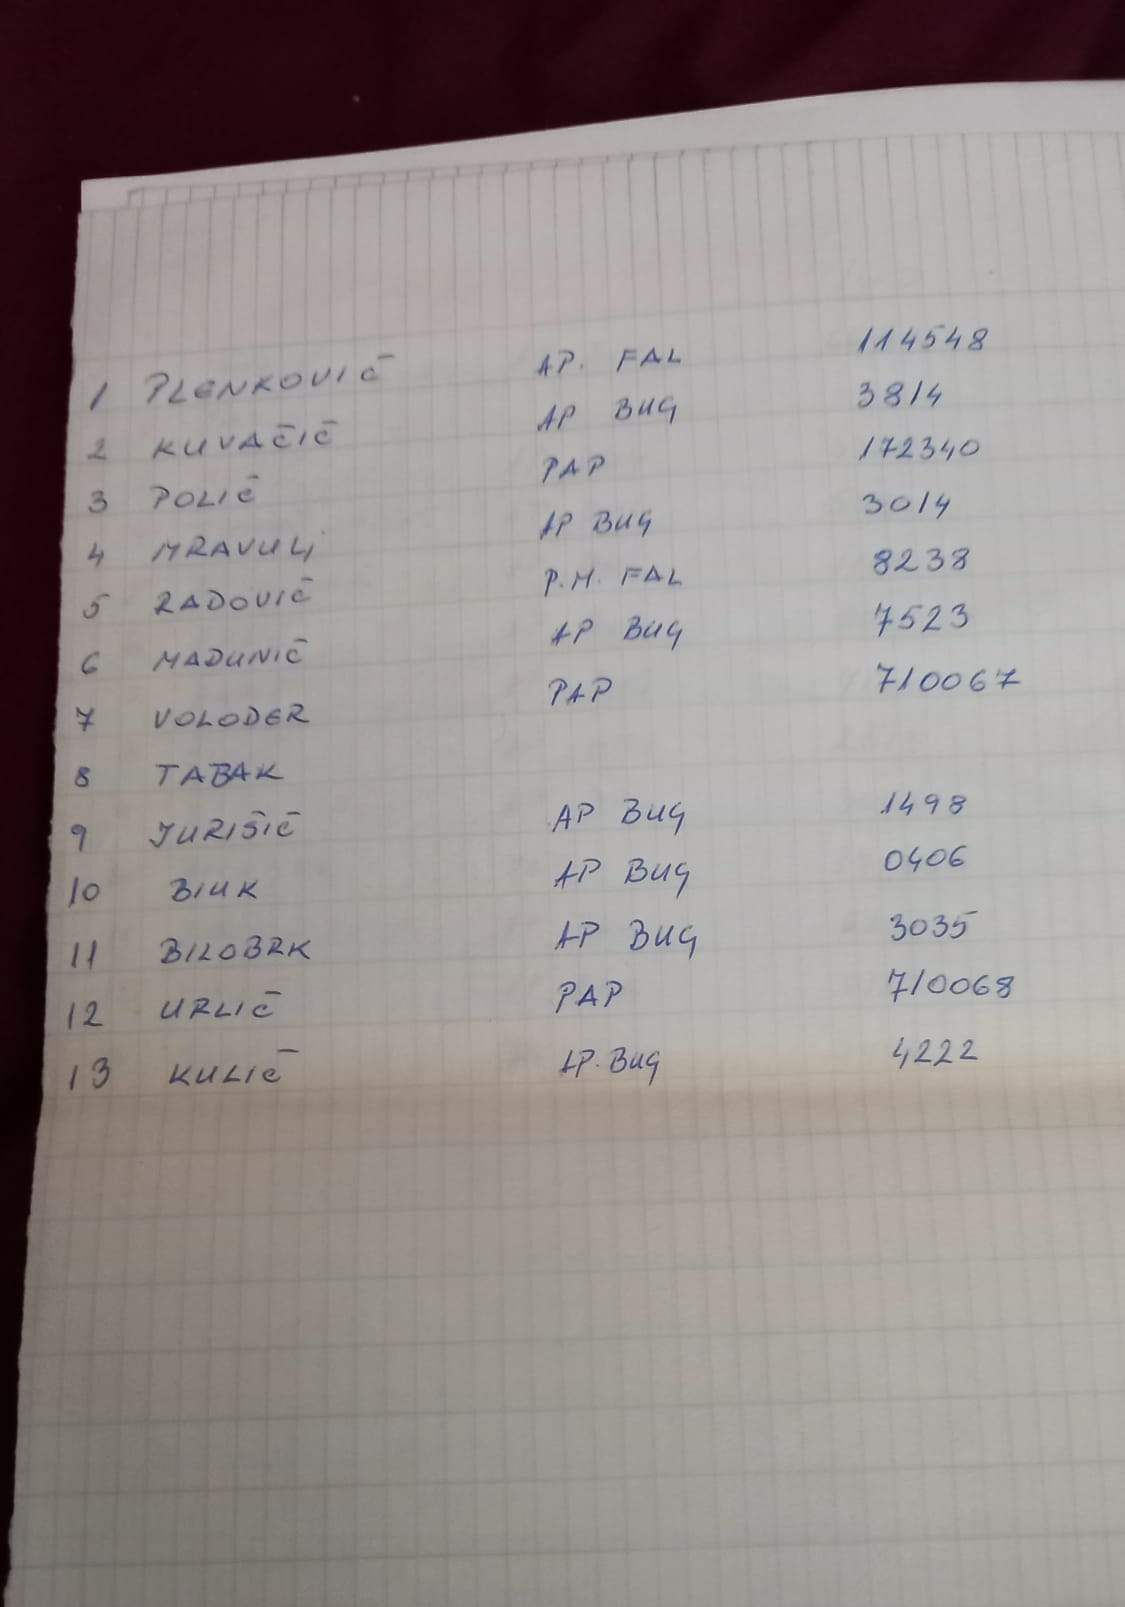 1 PLENKOVIĆ AP. FAL 114548
2 KUVAČIĆ AP BUG 3814
3 POLIĆ PAP 172340
4 MRAVULJ AP BUG 3014
5 RADOVIĆ P.M. FAL 8238
6 MADUNIĆ AP BUG 7523
7 VOLODER PAP 710067
8 TABAK
9 JURIŠIĆ AP BUG 1498
10 BIUK AP BUG 0406
11 BILOBRK AP BUG 3035
12 URLIĆ PAP 710068
13 KULIĆ AP. BUG 4222